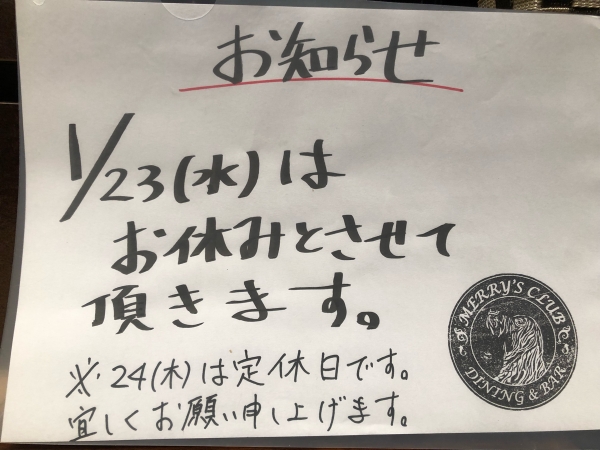 お知らせ
1/23(水)は
お休みとさせて
頂きます。
※24(木)は定休日です。
宜しくお願い申し上げます。
MERRY'S CLUB
DINING & BAR